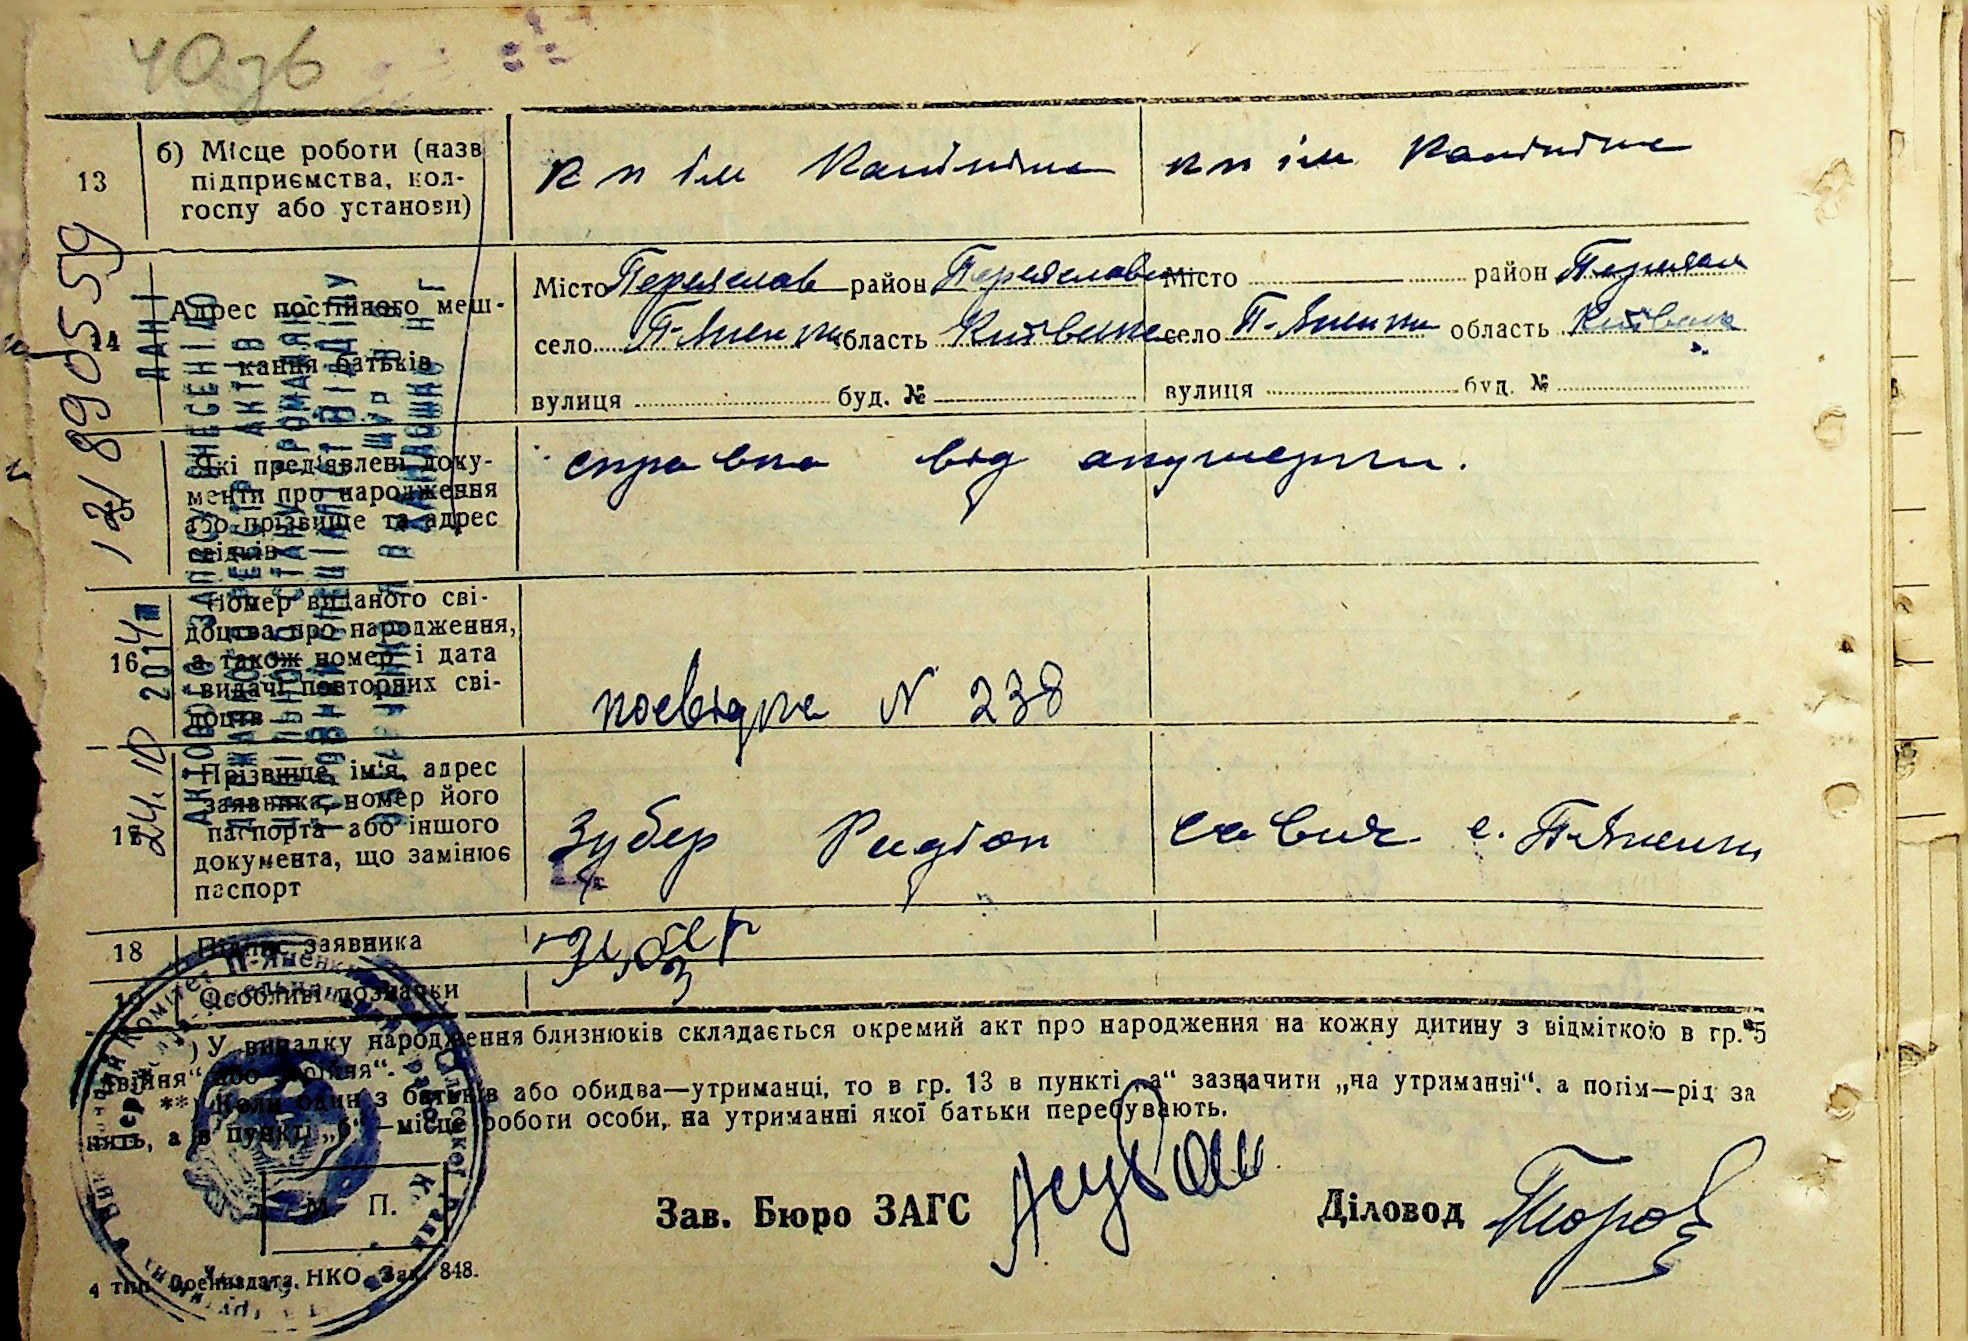 13 б) Місце роботи (назв підприємства, колгоспу або установи)
к п ім Калініна
кп ім Калініна
14 Адрес постійного мешкання батьків
Місто Переяслав район Переяслав
село П-Яненки область Київська
вулиця буд. №
Місто район Переяслав
село П-Яненки область Київська
вулиця буд. №
12/8905559
Які пред'явлені документи про народження
або прізвище та адрес
свідків
справка від акушерки.
16 Номер виданого свідоцтва про народження,
а також номер і дата
видачі повторних свідоцтв
посвідка N 238
24.10 2014
17 Прізвище, ім'я, адрес
заявника, номер його
паспорта або іншого
документа, що замінює
паспорт
Зубер Родіон Савич с. П-Яненки
18 Підпис заявника
Зубер
19 Особливі позначки
*) У випадку народження близнюків складається окремий акт про народження на кожну дитину з відміткою в гр. 5
„двійня“ або „трійня“.
**) Коли один з батьків або обидва—утриманці, то в гр. 13 в пункті „а“ зазначити „на утриманні“, а потім—рід за
нять, а в пункті „б“—місце роботи особи, на утриманні якої батьки перебувають.
М. П.
Зав. Бюро ЗАГС
Діловод
4 тип. Воениздата. НКО. Зак. 848.